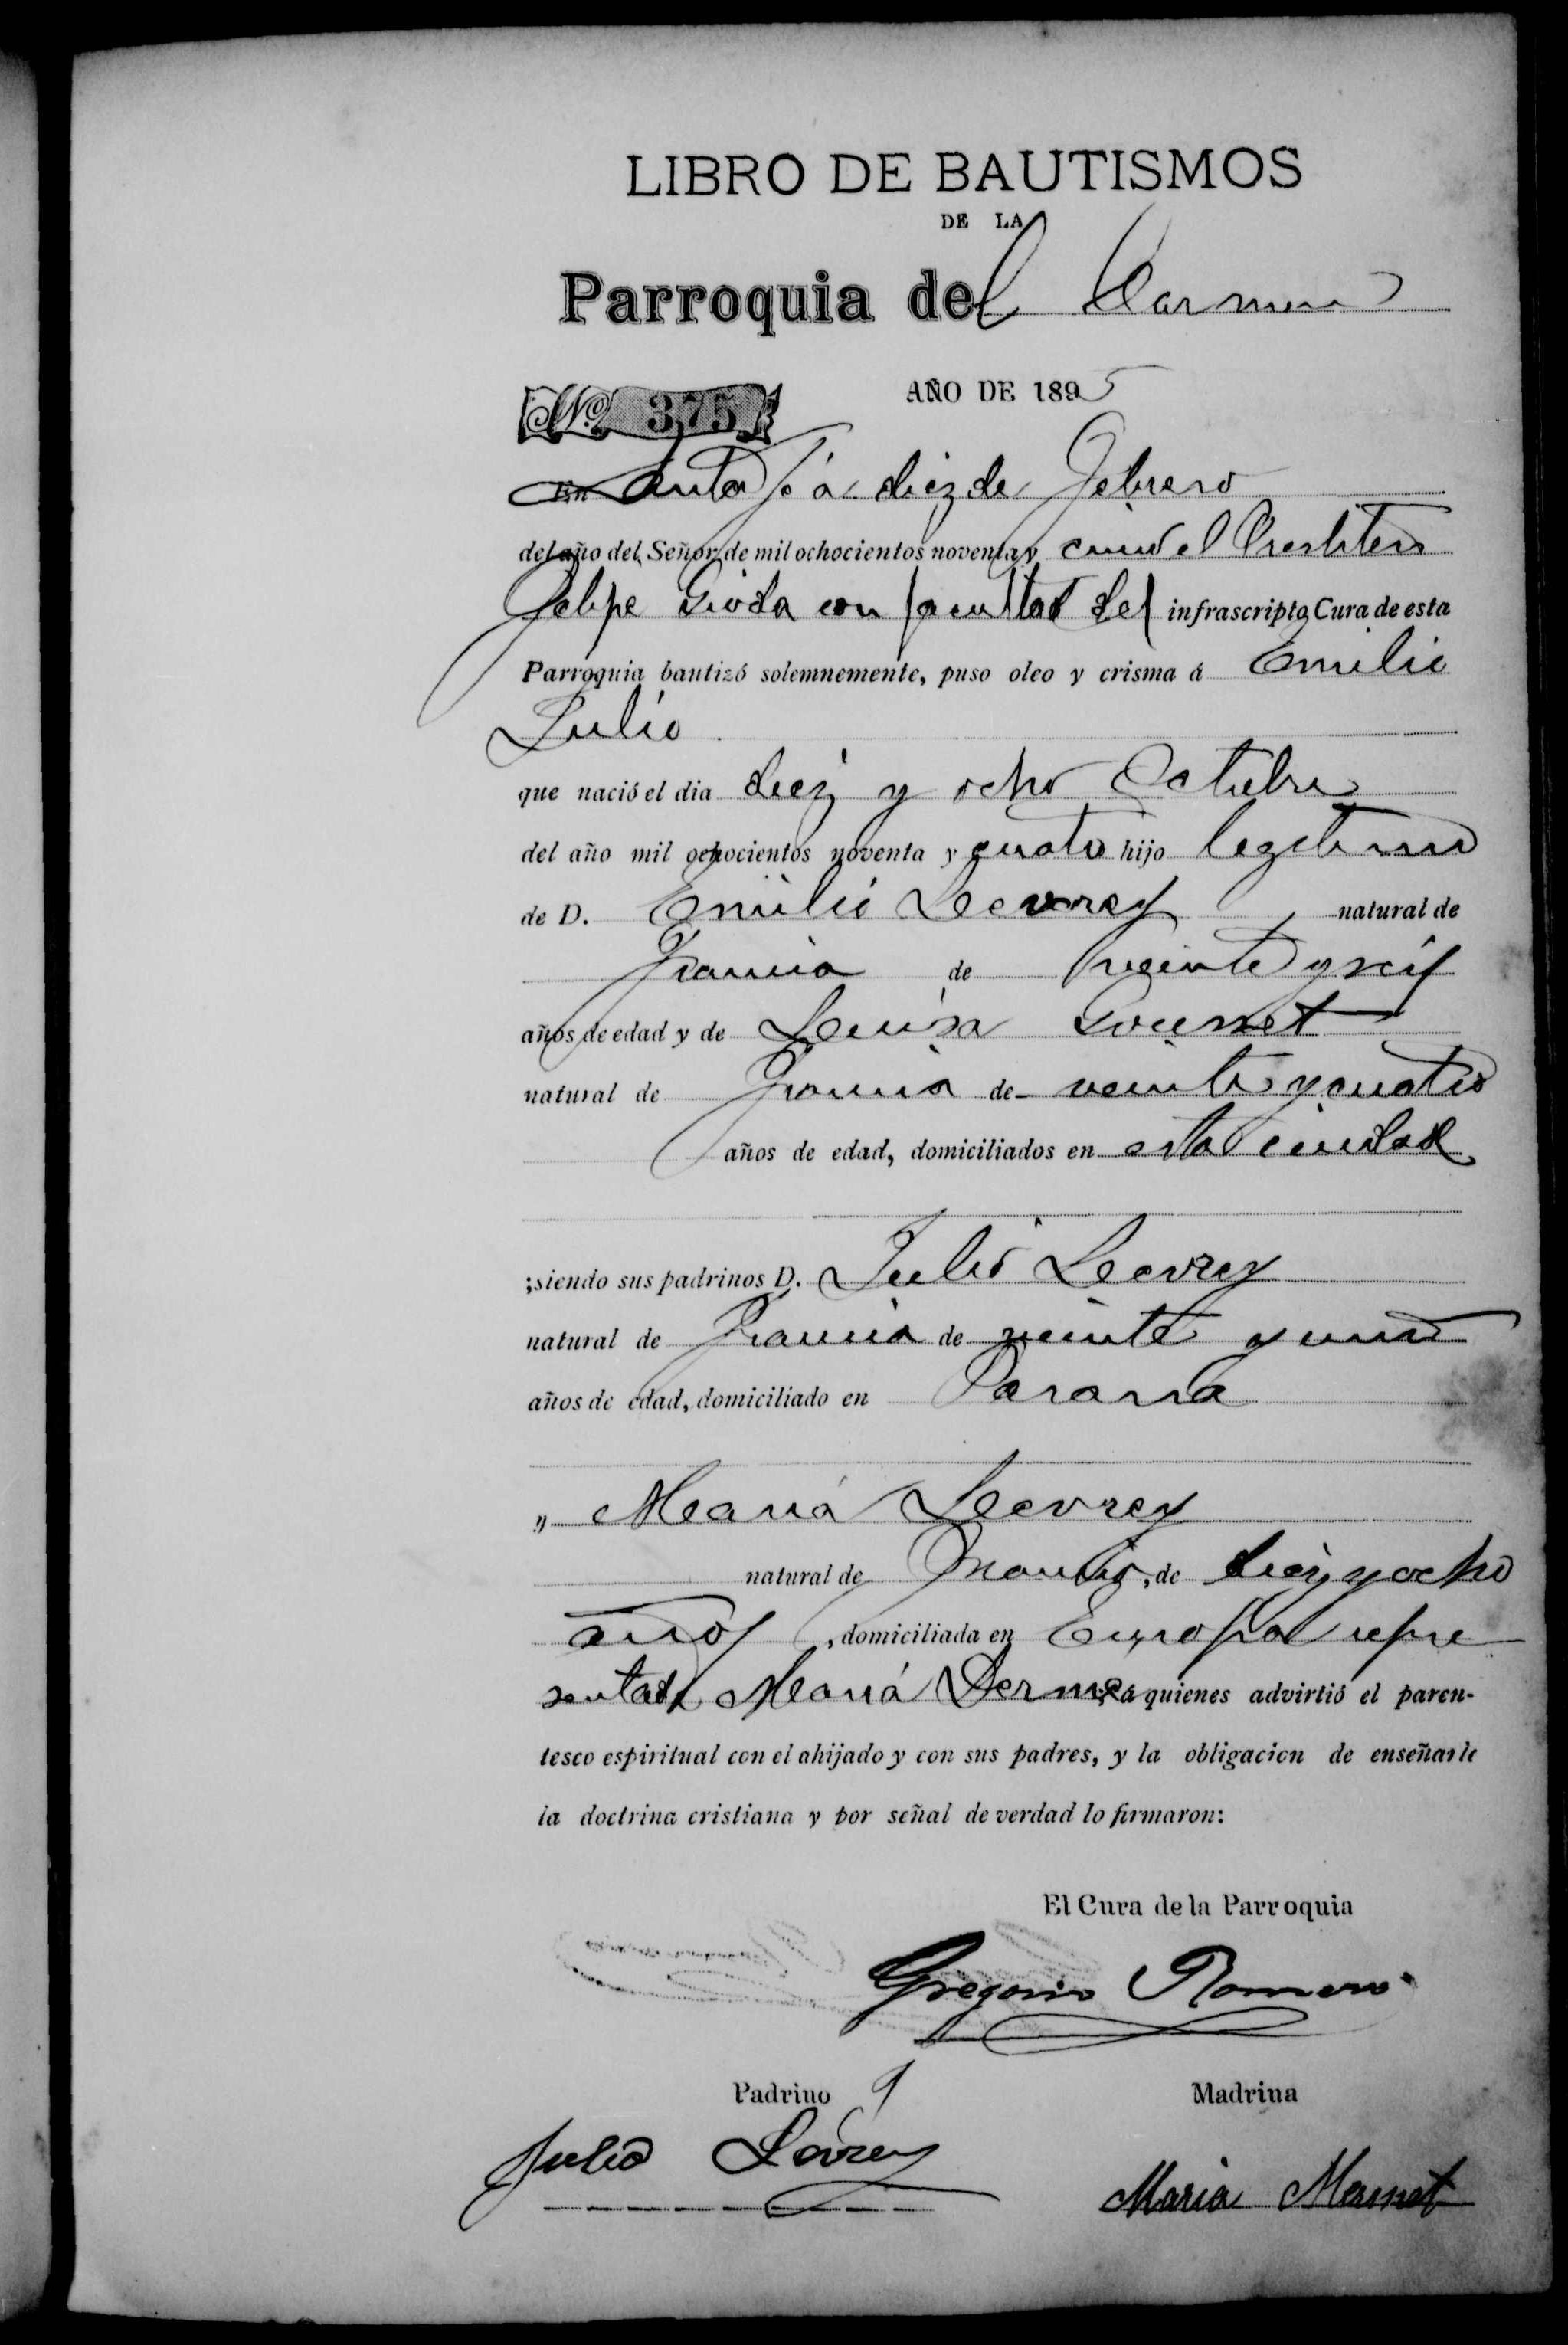 LIBRO DE BAUTISMOS
DE LA
Parroquia del Carmen
AÑO DE 1895
No. 375
En Santa Fé á diez de Febrero
del año del Señor de mil ochocientos noventa y cinco el Presbitero
Felipe Gioda con facultad del infrascripto Cura de esta
Parroquia bautizó solemnemente, puso oleo y crisma á Emilio
Julio
que nació el dia diez y ocho Octubre
del año mil ochocientos noventa y cuatro hijo legitimo
de D. Emilio Leevrey natural de
Francia de veinte y seis
años de edad y de Luisa
natural de Francia de veinte y cuatro
años de edad, domiciliados en esta ciudad
;siendo sus padrinos D. Julio Leevrey
natural de Francia de veinte y uno
años de edad, domiciliado en Parana
y Maria Leevrey
natural de Francia, de diez y ocho
años, domiciliada en Europa repre
sentada Maria á quienes advirtió el paren-
tesco espiritual con el ahijado y con sus padres, y la obligacion de enseñarle
la doctrina cristiana y por señal de verdad lo firmaron:
El Cura de la Parroquia
Gregorio Romero
Padrino Madrina
Julio Maria